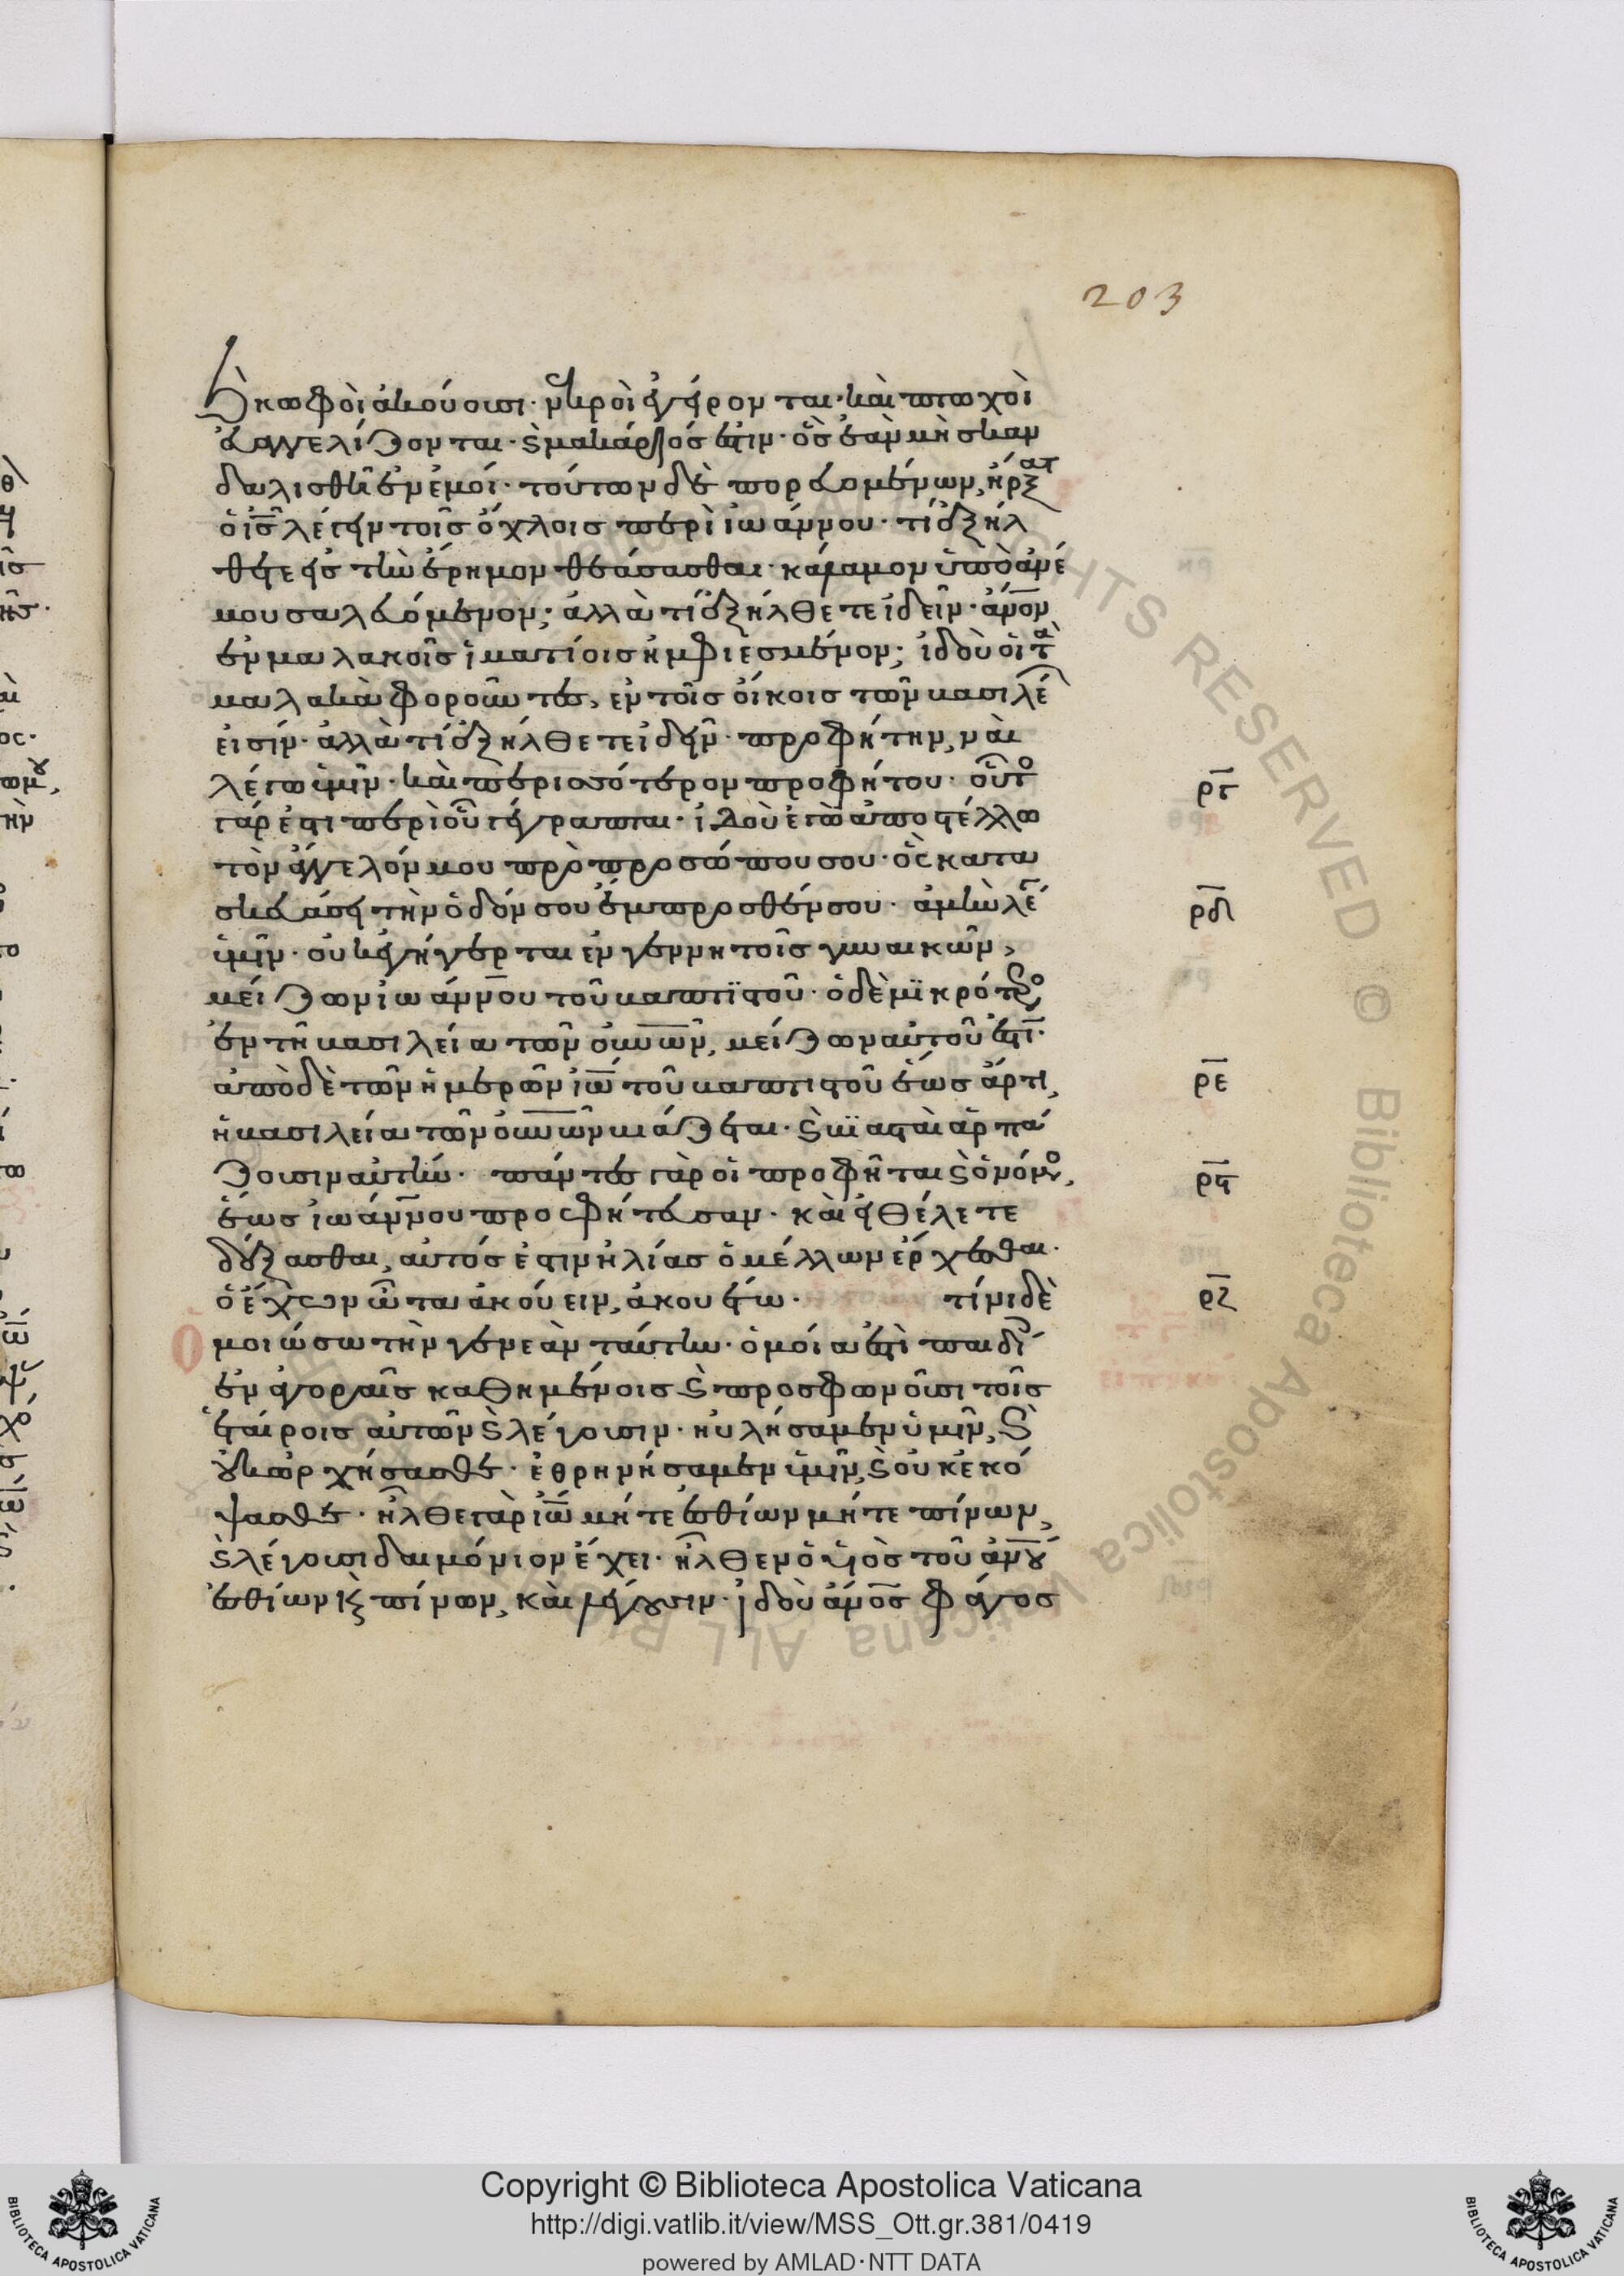 203
κωφοὶ ἀκούουσι· νεκροὶ ἐγείρονται· καὶ πτωχοὶ
εὐαγγελίζονται· ϗ μακάριός ἐστιν· ὃς ἐὰν μὴ σκαν
δαλισθῆ ἐν ἐμοί· τούτων δὲ πορευομένων, ἤρξατ
ὁ ις λέγειν τοῖς ὄχλοις περὶ ἰωάννου· τί ἐξήλ
θετε εἰς τὴν ἔρημον θεάσασθαι· κάλαμον ὑπὸ ἀνέ
μου σαλευόμενον; ἀλλὰ τί ἐξήλθετε ἰδεῖν· ἀνον
ἐν μαλακοῖς ἱματίοις ἠμφιεσμένον; ἰδοὺ οἱ τὰ
μαλακὰ φοροῦντες, ἐν τοῖς οἴκοις τῶν βασιλέ
εἰσίν· ἀλλὰ τί ἐξήλθετε ἰδεῖν· προφήτην, ναὶ
λέγω ὑμῖν· καὶ περισσότερον προφήτου· οὗτο
γάρ ἐστι περὶ οὗ γέγραπται· ἰδοὺ ἐγὼ ἀποστέλλω
τὸν ἄγγελόν μου πρὸ προσώπου σου· ὃς κατα
σκευάσει τὴν ὁδόν σου ἔμπροσθέν σου· ἀμὴν λέ
ὑμῖν· οὐκ ἐγήγερται ἐν γεννητοῖς γυναικῶν,
μείζων ἰωάννου τοῦ βαπτιστοῦ· ὁ δὲ μϊκρότερο
ἐν τῆ βασιλεία τῶν οὐνων, μείζων αὐτοῦ ἐστι·
ἀπὸ δὲ τῶν ἡμερῶν ἰω τοῦ βαπτιστοῦ ἕως ἄρτι,
ἡ βασιλεία τῶν οὐνων βιάζεται· ϗ βϊασταὶ ἁρπά
ζουσιν αὐτήν· πάντες γὰρ οἱ προφῆται ϗ ὁ νόμο,
ἕως ἰωάννου προεφήτευσαν· καὶ εἰ θέλετε
δέξασθαι, αὐτός ἐστιν ἠλίας ὁ μέλλων ἔρχεσθαι·
ὁ ἔχων ὦτα ἀκούειν, ἀκουέτω· τίνι δὲ
ὁμοιώσω τὴν γενεὰν ταύτην· ὁμοία ἐστὶ παιδί
ἐν ἀγοραῖς καθημένοις ϗ προσφωνοῦσι τοῖς
ἑταίροις αὐτῶν ϗ λέγουσιν· ηὐλήσαμεν ὑμῖν, ϗ
οὐκ ὠρχήσασθε· ἐθρηνήσαμεν ὑμῖν, ϗ οὐκ ἐκό
ψασθε· ἦλθε γὰρ ἰω μήτε ἐσθίων μήτε πίνων,
ϗ λέγουσι δαιμόνιον ἔχει· ἦλθεν ὁ υἱὸς τοῦ ἀνου
ἐσθίων ϗ πίνων, καὶ λέγουσιν· ἰδοὺ ἄνος φάγος
ργ
ρδ
ρε
ρϛ
ρζ
Copyright © Biblioteca Apostolica Vaticana
http://digi.vatlib.it/view/MSS_Ott.gr.381/0419
powered by AMLAD·NTT DATA